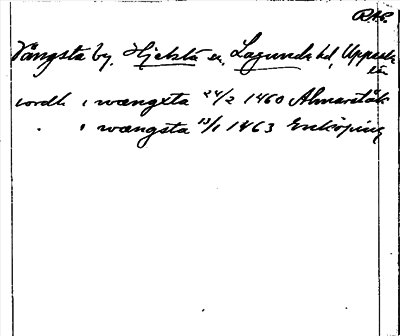 RAP.
Vångsta by, Hjelsta sn, Lagunda hd, Uppsala
län
i wangxta 24/2 1460 Almarstäk
. i wangsta 13/1 1463 Enköping